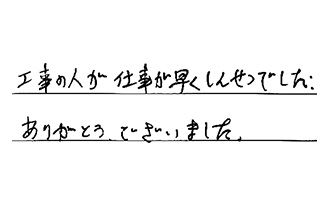 工事の人が仕事が早くしんせつでした.
ありがとう、ございました.